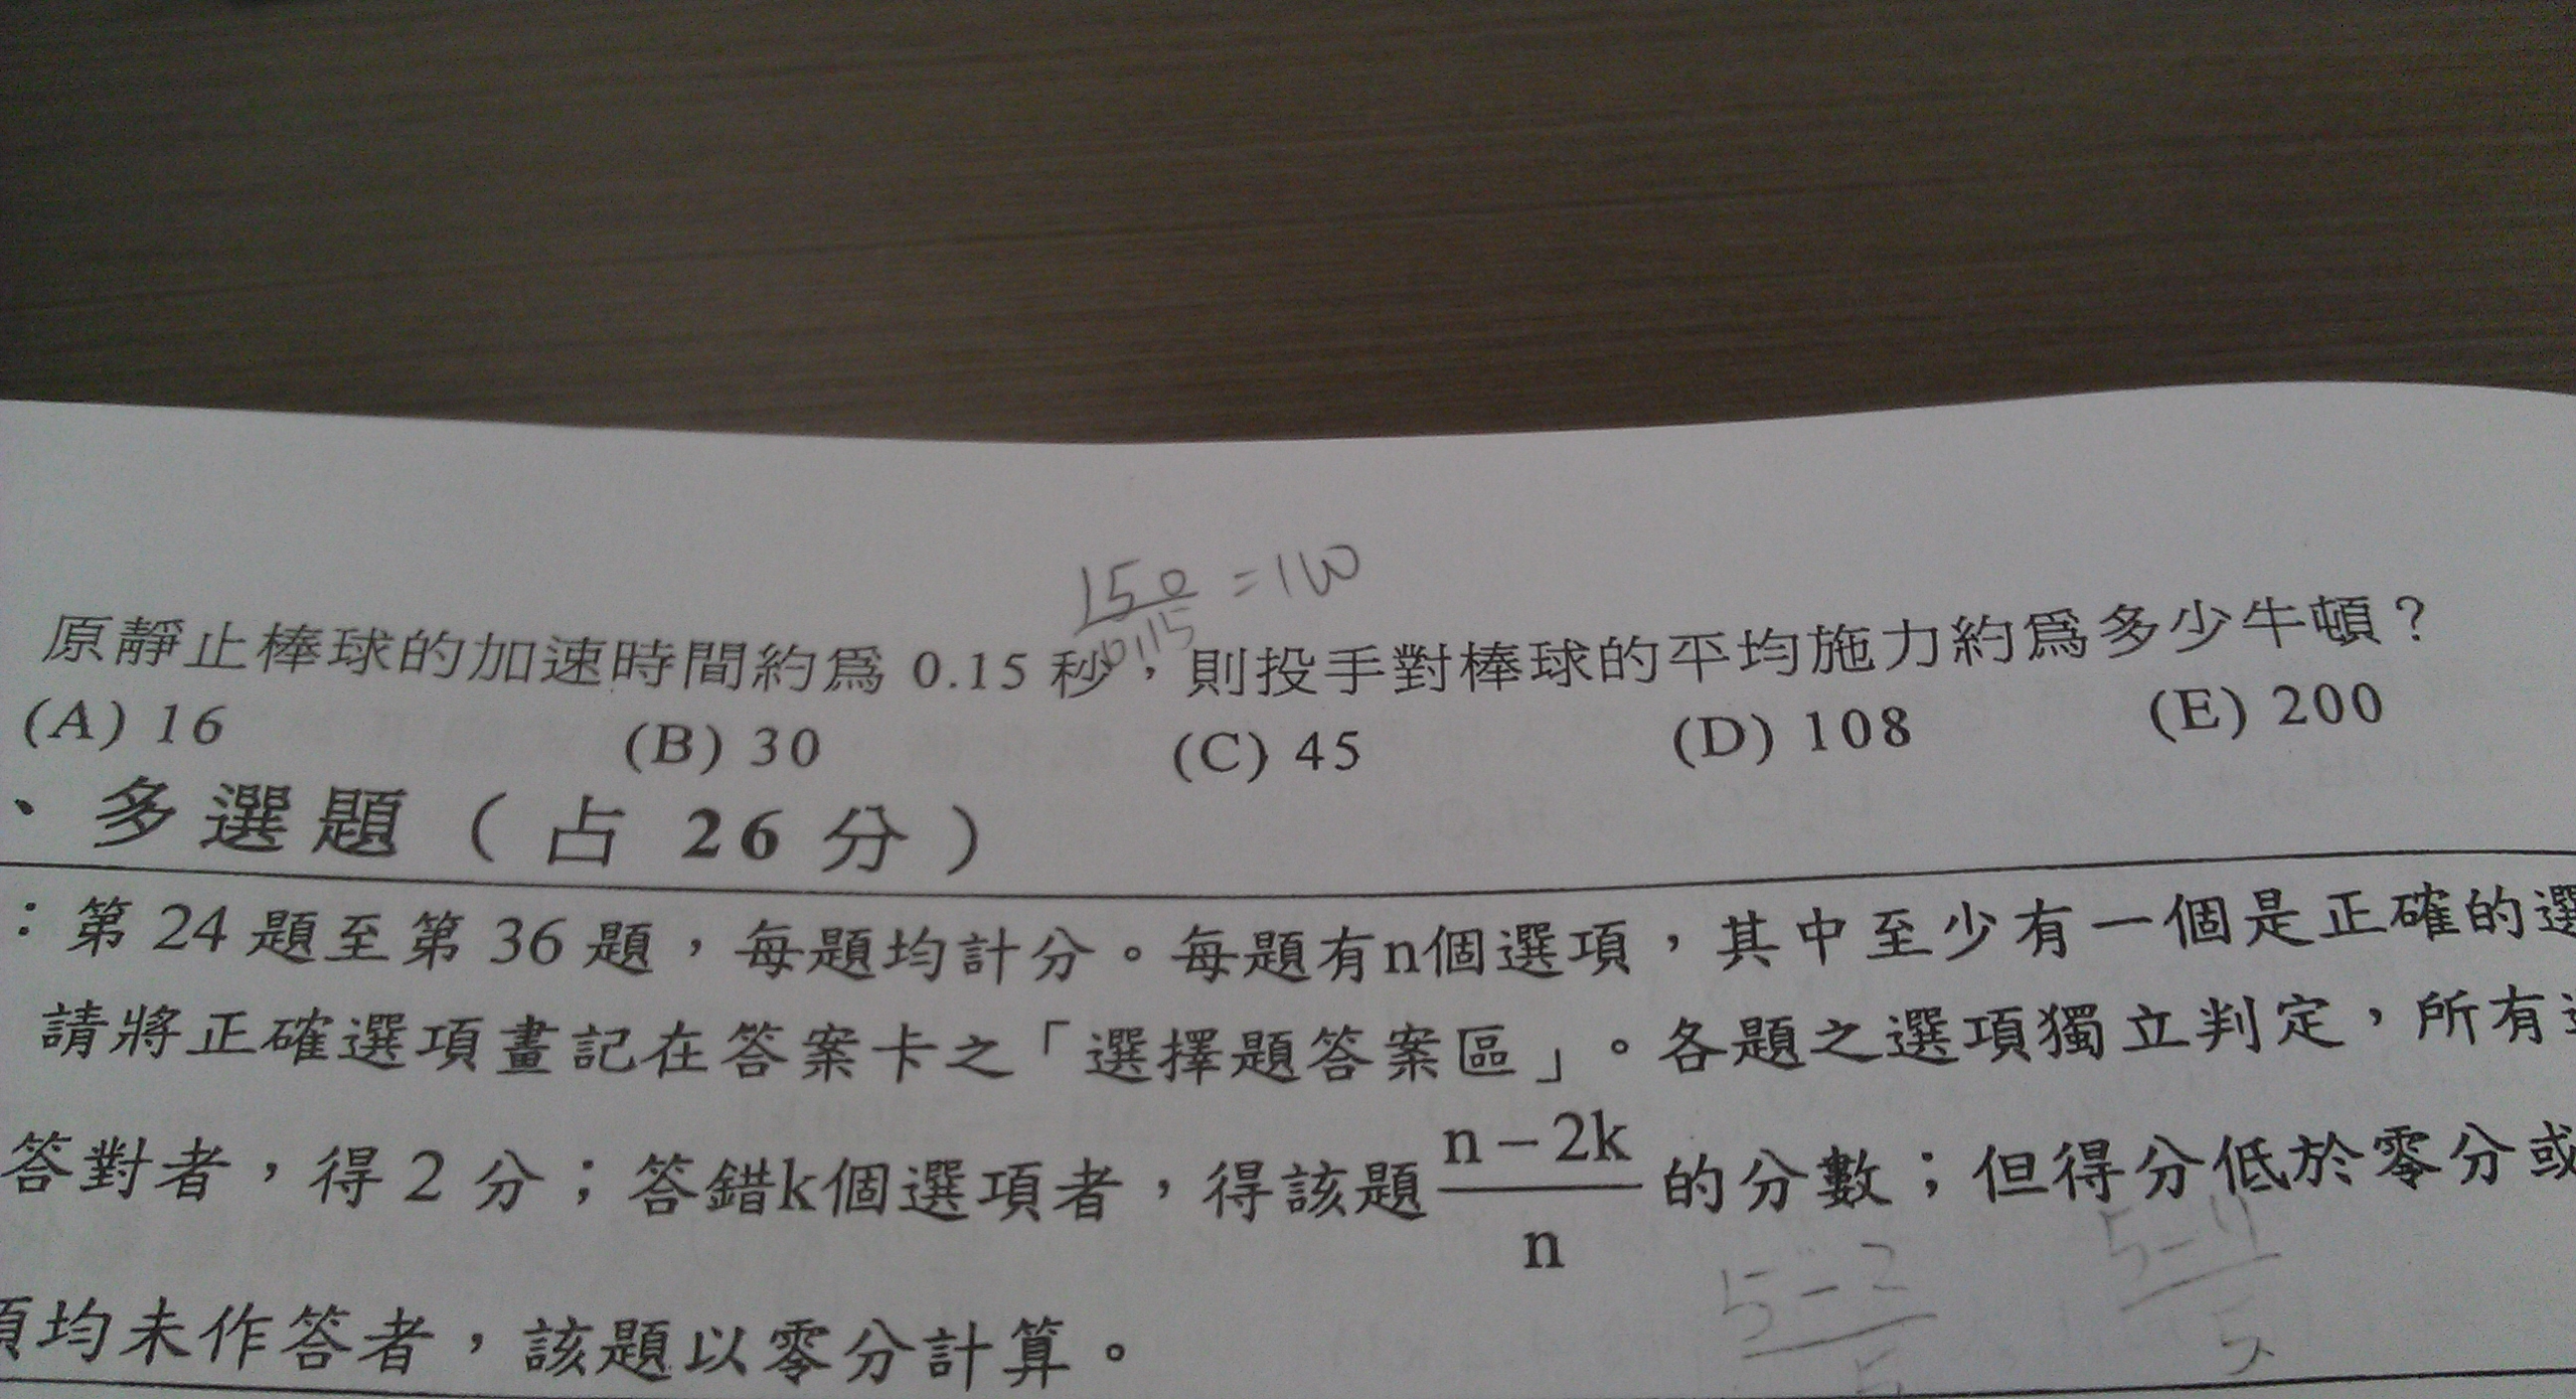 150/0.15 = 100
原靜止棒球的加速時間約為 0.15 秒，則投手對棒球的平均施力約為多少牛頓？
(A) 16 (B) 30 (C) 45 (D) 108 (E) 200
、多選題（占 26 分）
：第 24 題至第 36 題，每題均計分。每題有n個選項，其中至少有一個是正確的選
請將正確選項畫記在答案卡之「選擇題答案區」。各題之選項獨立判定，所有
答對者，得 2 分；答錯k個選項者，得該題 n－2k/n 的分數；但得分低於零分或
5－2/5 5－4/5
項均未作答者，該題以零分計算。